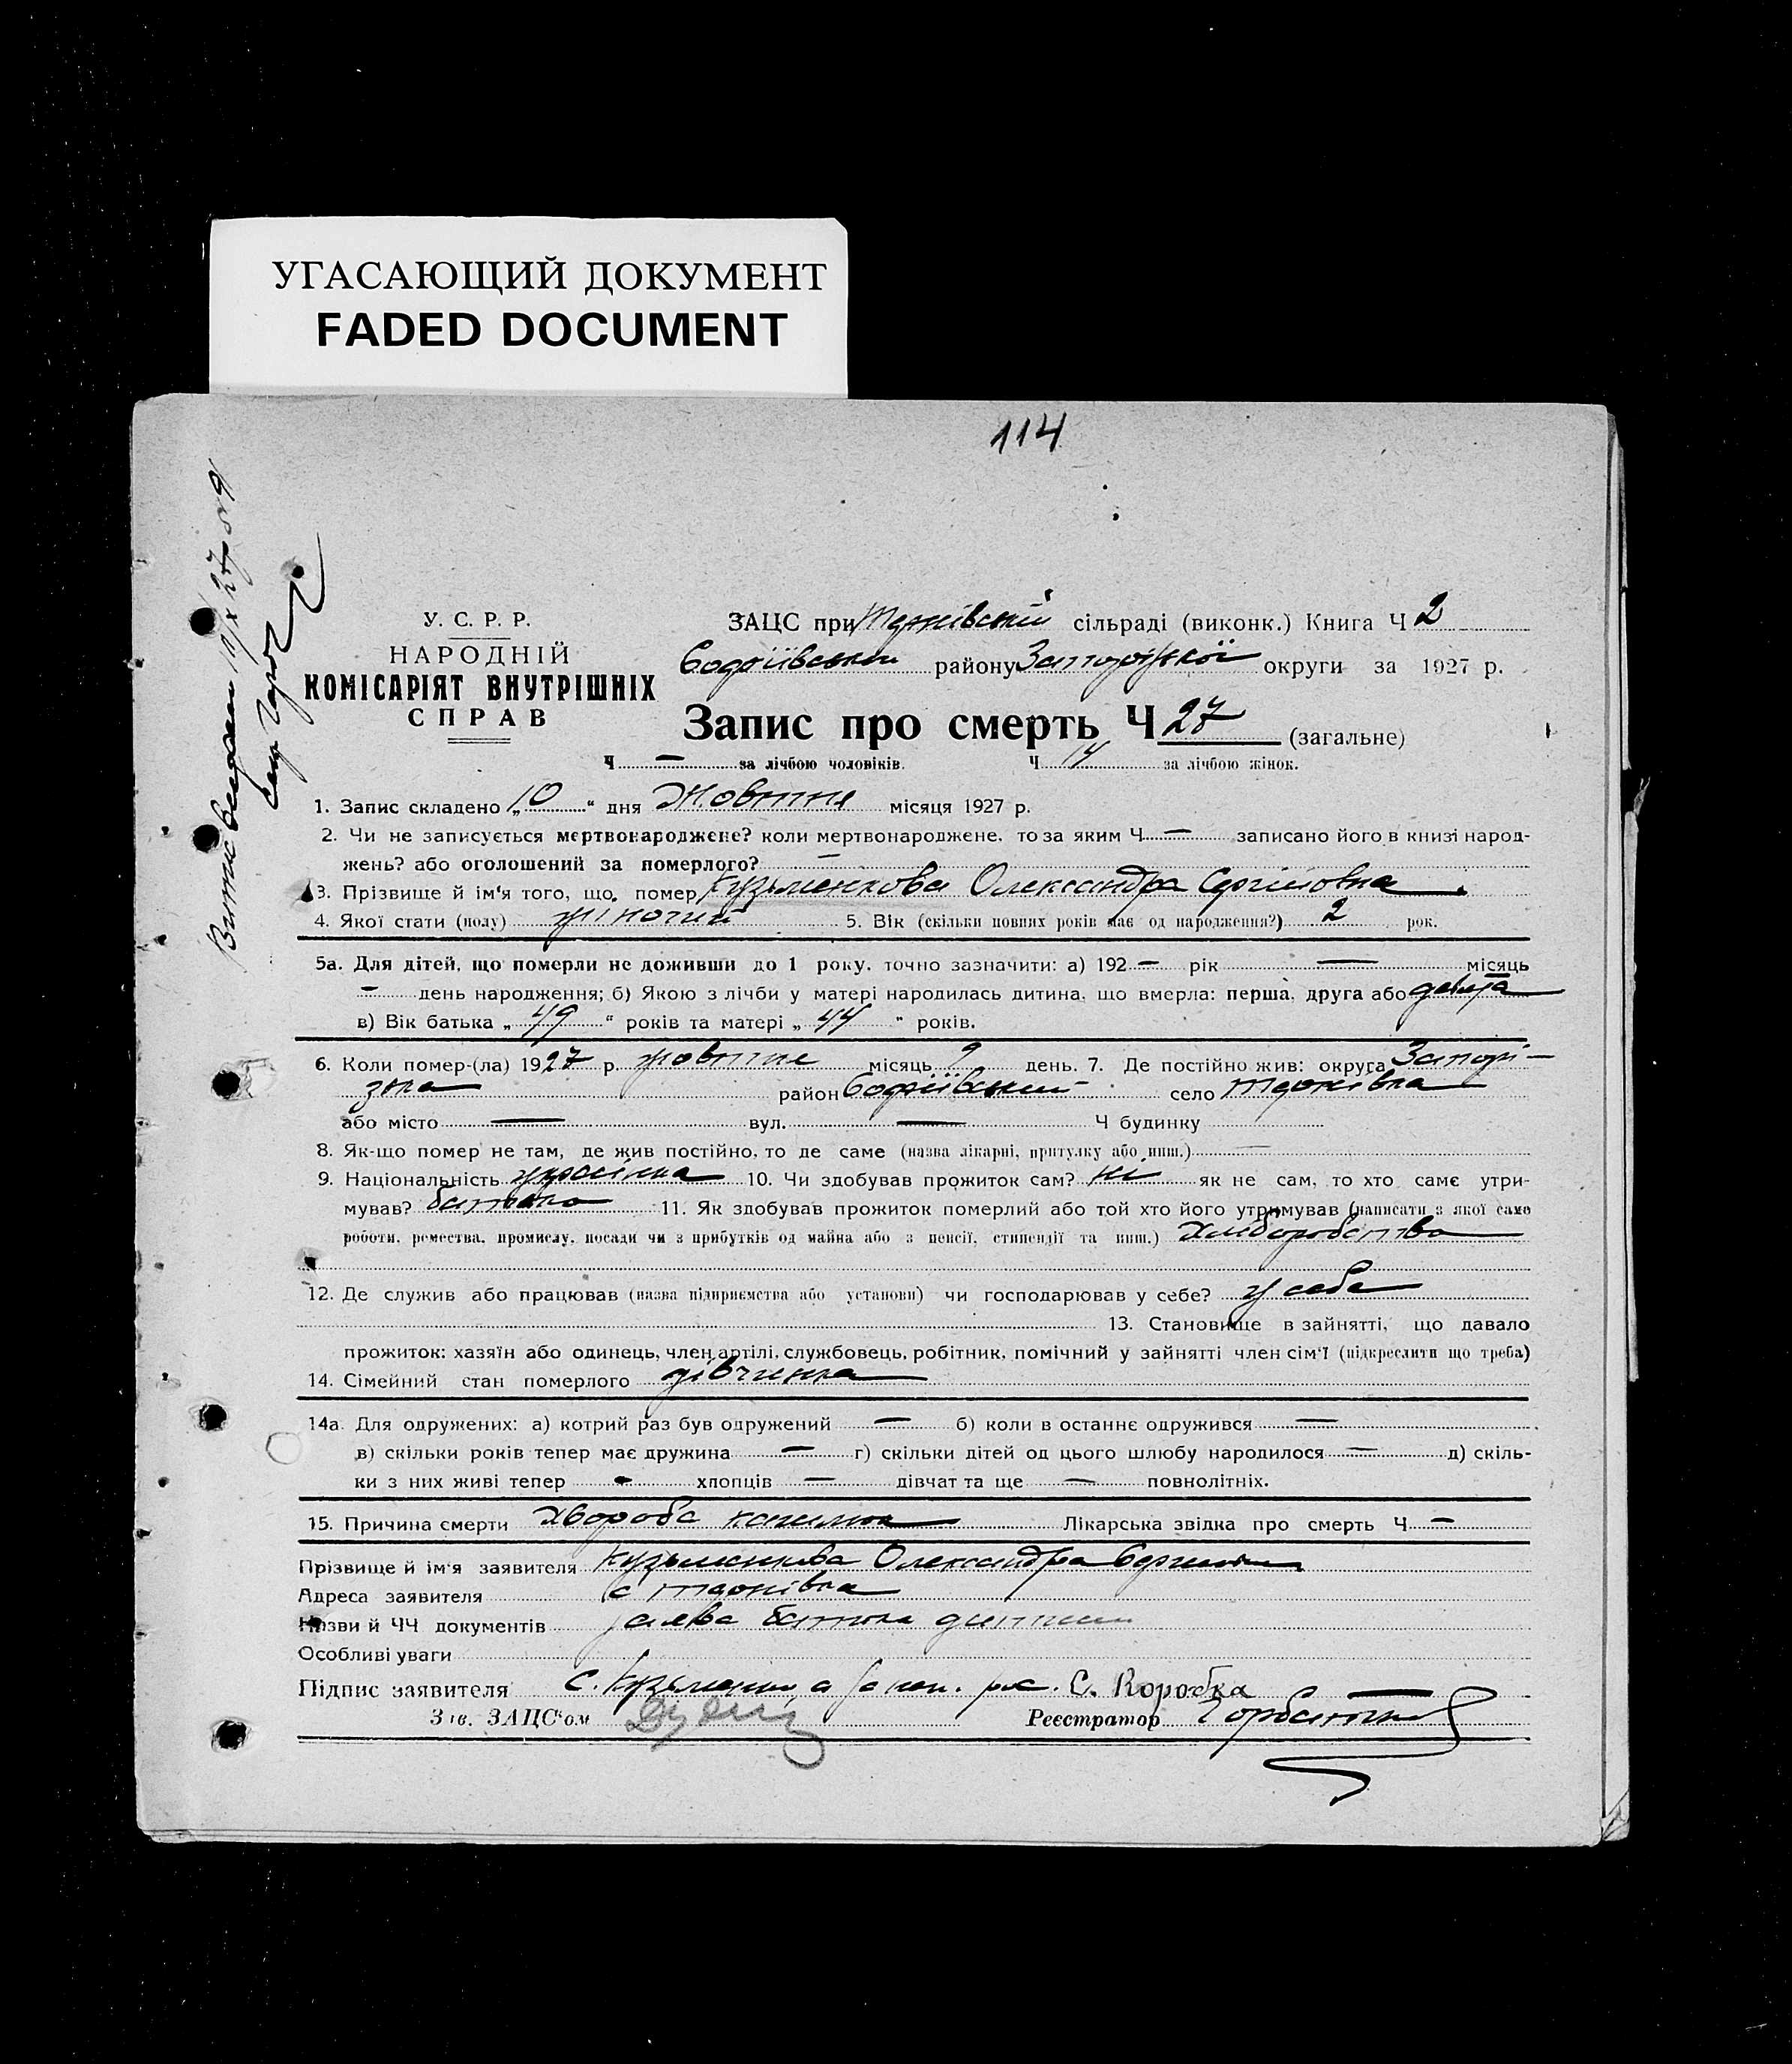 УГАСАЮЩИЙ ДОКУМЕНТ
FADED DOCUMENT
114
У. С. Р. Р.
НАРОДНІЙ
КОМІСАРІЯТ ВНУТРІШНІХ
СПРАВ
ЗАЦС при Тернівській сільраді (виконк.) Книга Ч 2
Софіївський району Запорізької округи за 1927 р.
Запис про смерть Ч 27 (загальне)
Ч — за лічбою чоловіків. Ч 14 за лічбою жінок.
1. Запис складено „10“ дня Жовтня місяця 1927 р.
2. Чи не записується мертвонароджене? коли мертвонароджене, то за яким Ч — записано його в книзі народ-
жень? або оголошений за померлого? —
3. Прізвище й ім‘я того, що помер Кузьменкова Олександра Сергіївна
4. Якої стати (полу) жіночий 5. Вік (скільки повних років має од народження?) 2 рок.
5а. Для дітей, що померли не доживши до 1 року, точно зазначити: а) 192 — рік — місяць
— день народження; б) Якою з лічби у матері народилась дитина, що вмерла: перша, друга або девята
в) Вік батька „49“ років та матері „44“ років.
6. Коли помер-(ла) 1927 р. жовтня місяць 9 день. 7. Де постійно жив: округа Запорі-
зька район Софіївський село Тернівка
або місто — вул. — Ч будинку
8. Як-що помер не там, де жив постійно, то де саме (назва лікарні, притулку або инш.) —
9. Національність українка 10. Чи здобував прожиток сам? ні як не сам, то хто саме утри-
мував? батько 11. Як здобував прожиток померлий або той хто його утримував (написати з якої само
роботи, ремества, промислу, посади чи з прибутків од майна або з пенсії, стипендії та инш.) Хліборобство
12. Де служив або працював (назва підприємства або установи) чи господарював у себе? у себе
13. Становище в зайнятті, що давало
прожиток: хазяїн або одинець, член артілі, службовець, робітник, помічний у зайнятті член сім‘ї (підкреслити що треба)
14. Сімейний стан померлого дівчинка
14а. Для одружених: а) котрий раз був одружений — б) коли в останнє одружився —
в) скільки років тепер має дружина — г) скільки дітей од цього шлюбу народилося — д) скіль-
ки з них живі тепер — хлопців — дівчат та ще — повнолітніх.
15. Причина смерти Хвороба Лікарська звідка про смерть Ч —
Прізвище й ім‘я заявителя Кузьменкова Олександра
Адреса заявителя с Тернівка
Назви й ЧЧ документів заява батька дитини
Особливі уваги
Підпис заявителя С. Кузьменко а за неп. рос. С. Коробка
Зав. ЗАЦС‘ом Реєстратор